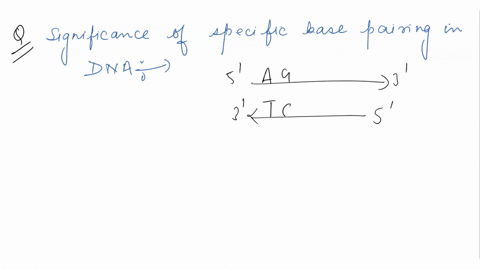 Q Significance of specific base pairing in
DNA :→
5' AG 3'
3' TC 5'